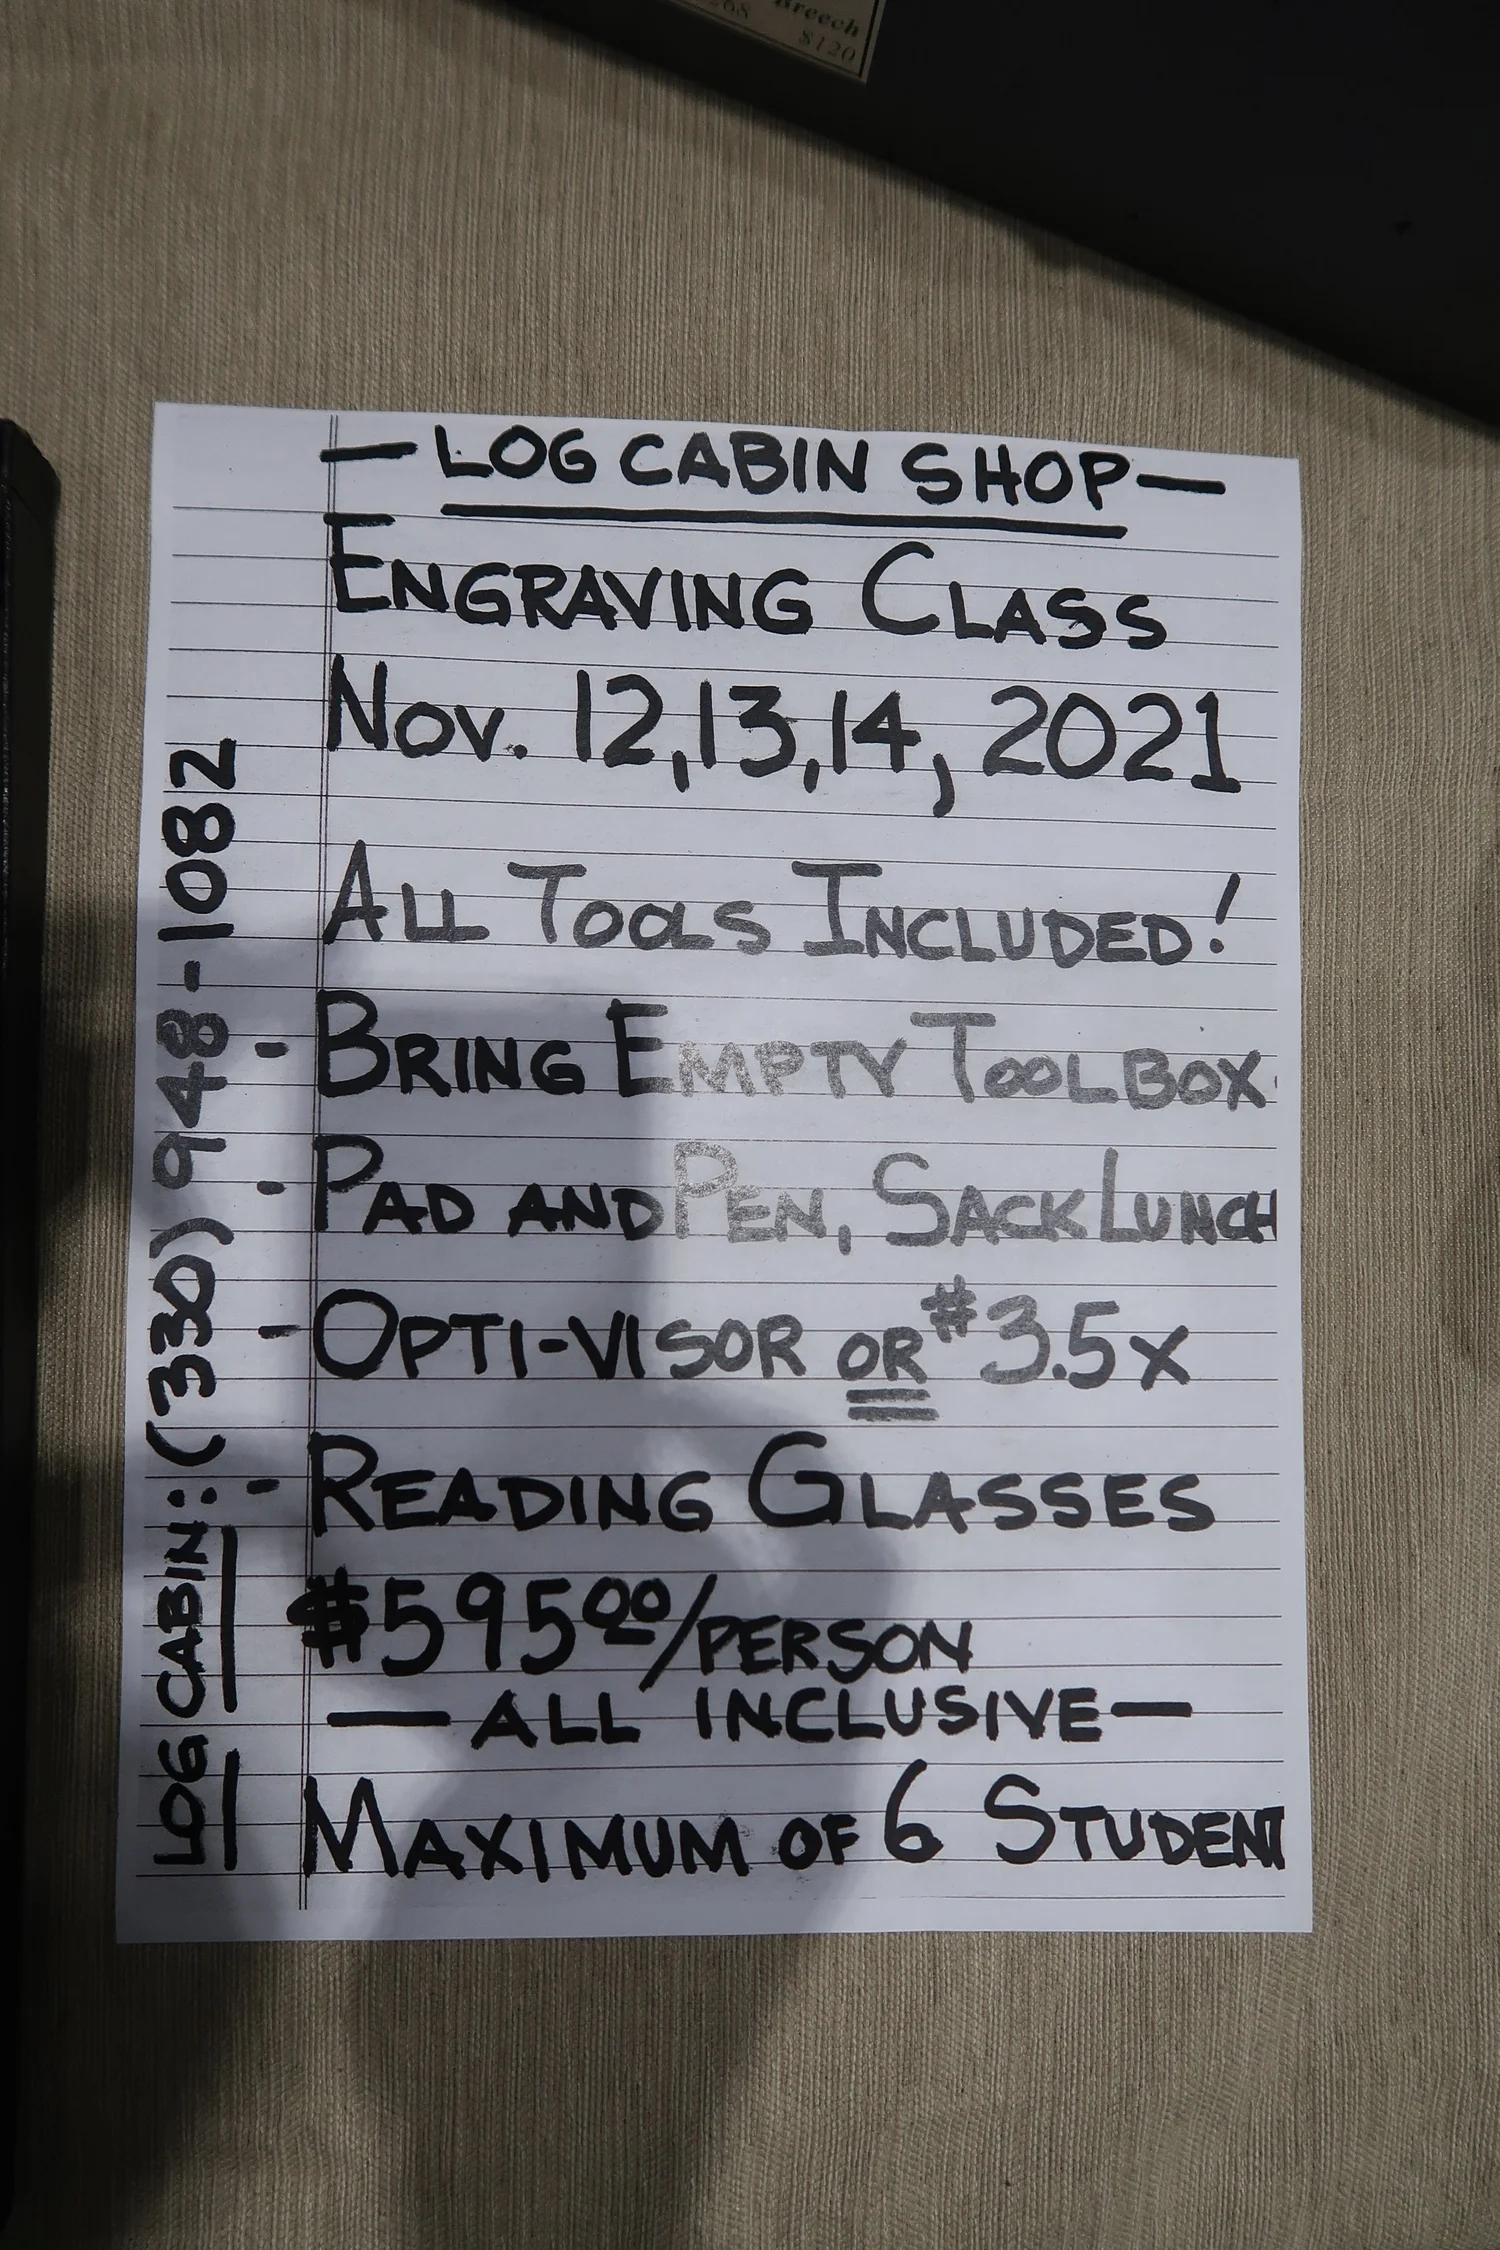 Breech
$120
— LOG CABIN SHOP —
ENGRAVING CLASS
NOV. 12,13,14, 2021
ALL TOOLS INCLUDED!
- BRING EMPTY TOOLBOX
- PAD AND PEN, SACK LUNCH
- OPTI-VISOR OR #3.5x
- READING GLASSES
$595.00/PERSON
— ALL INCLUSIVE —
MAXIMUM OF 6 STUDENT
LOG CABIN: (330) 948-1082